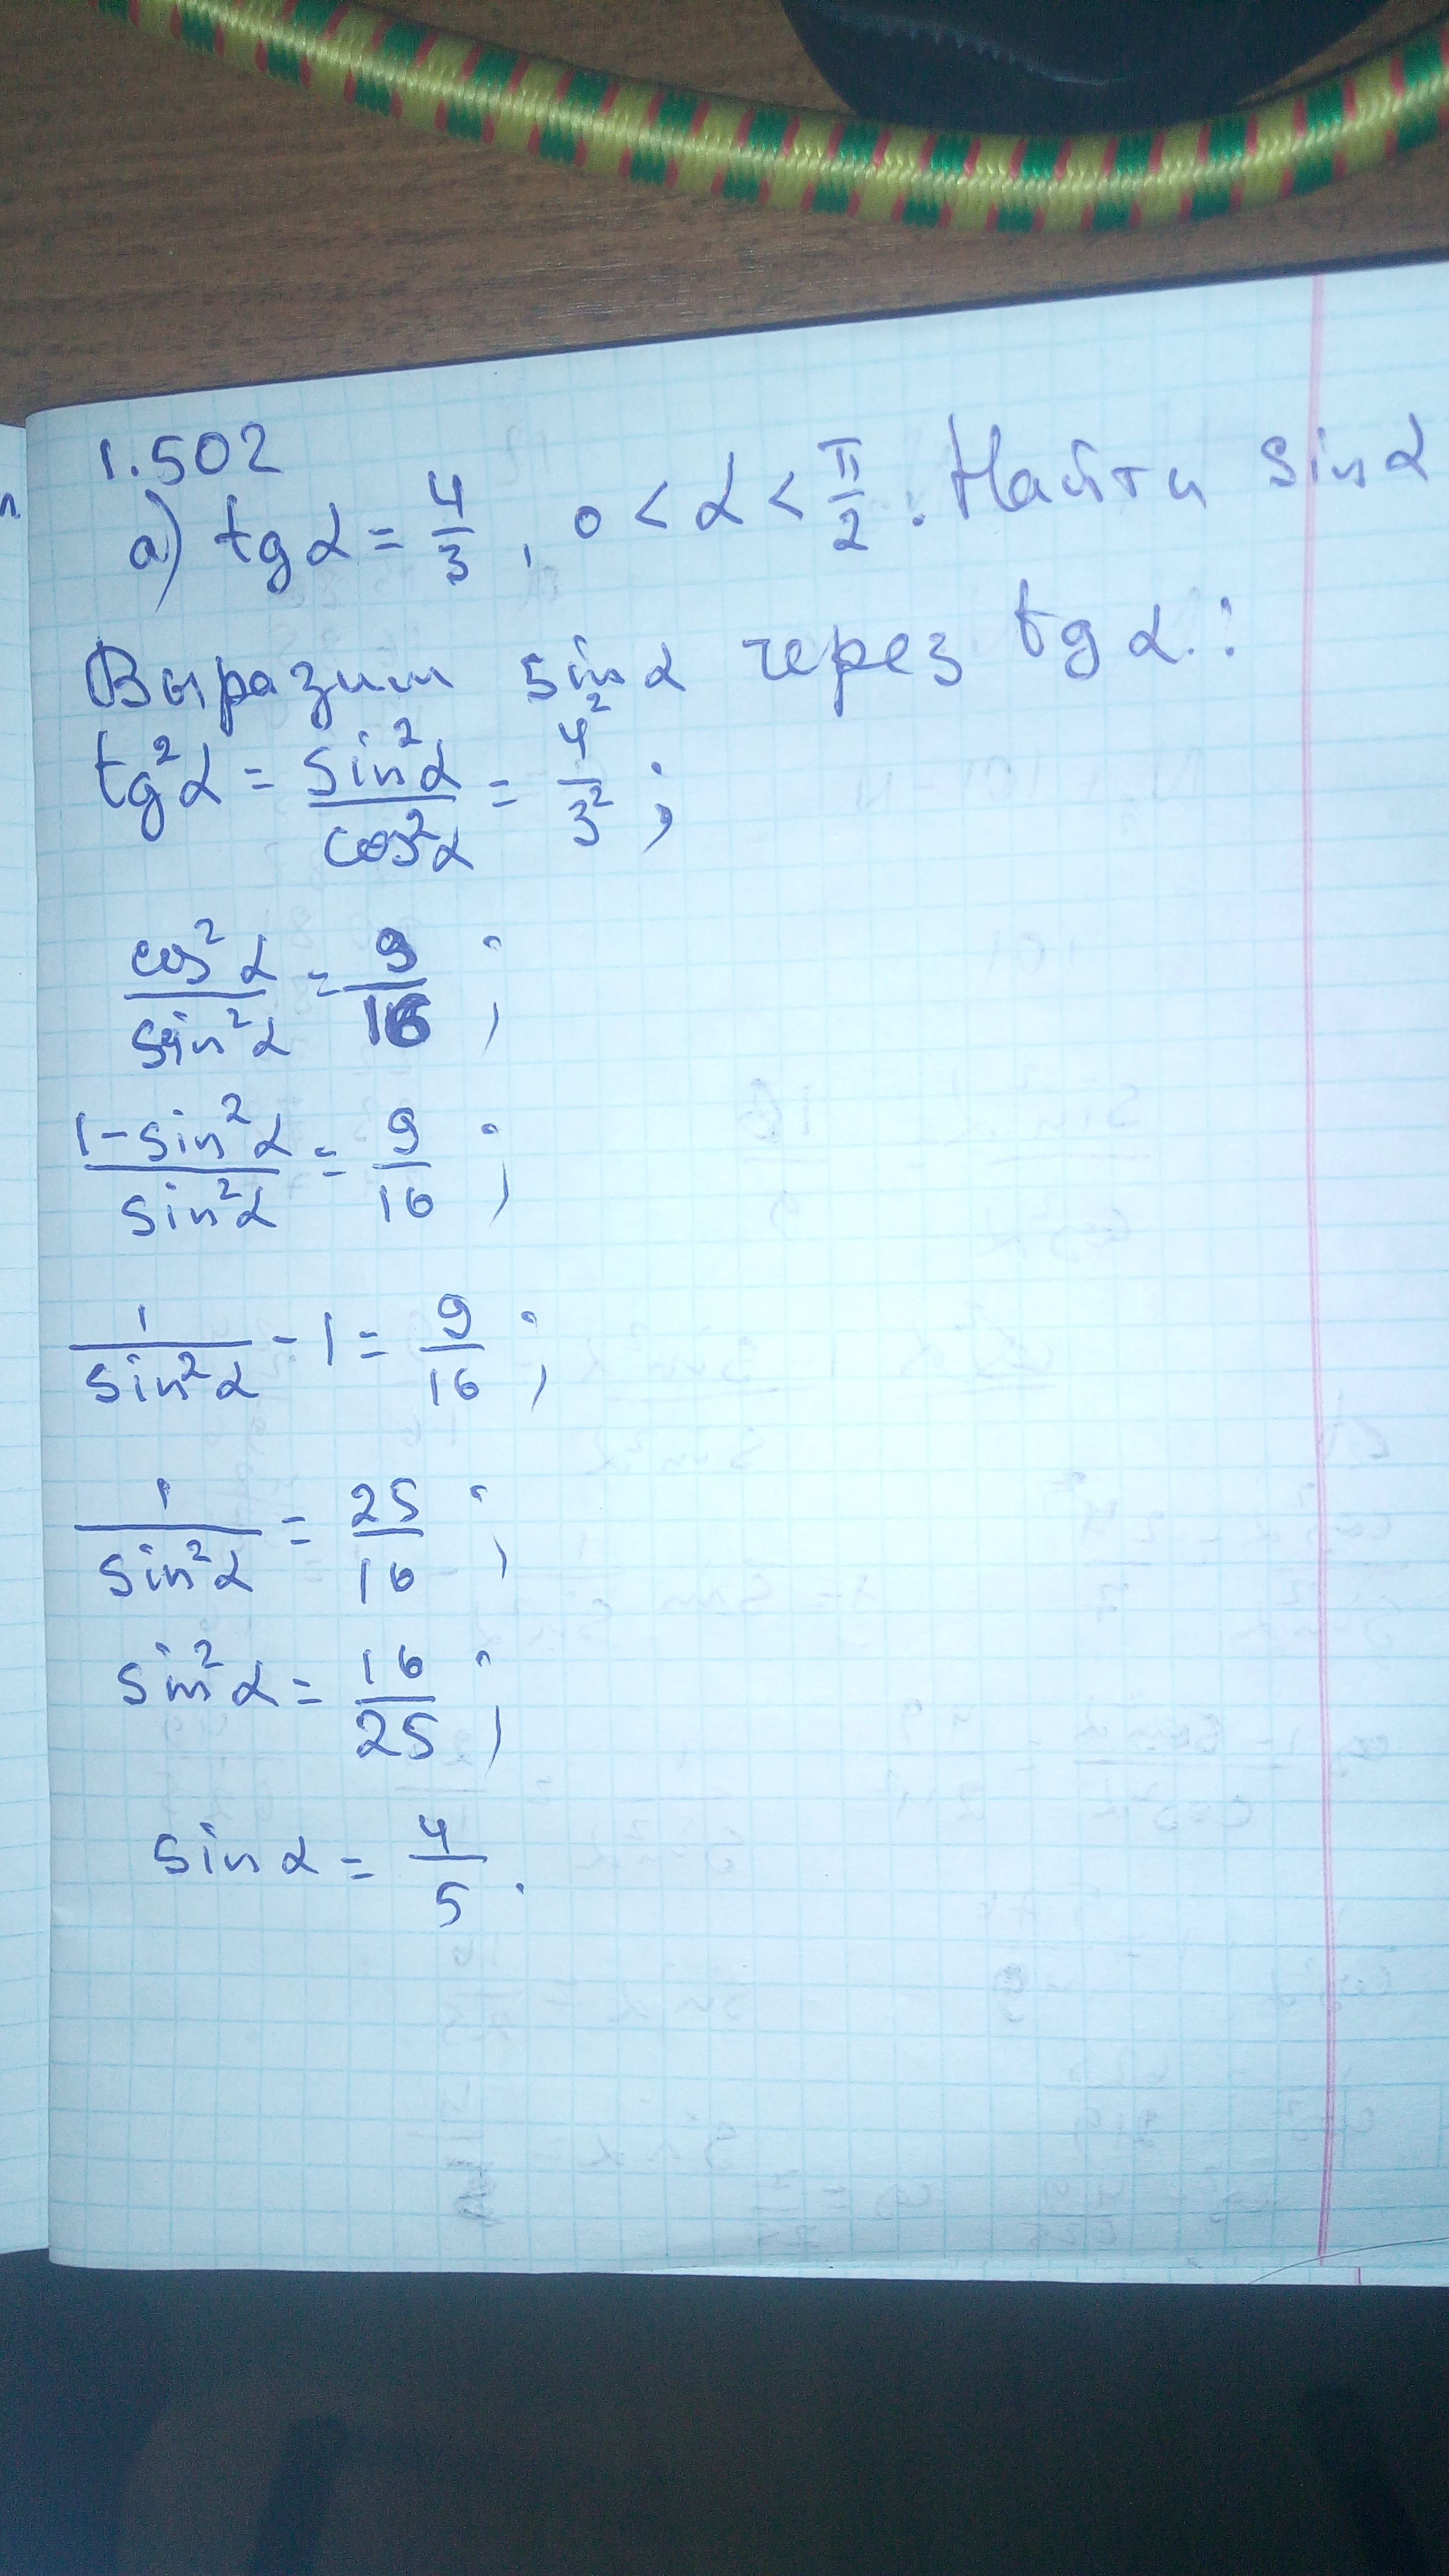 1.502
а) tg α = 4/3 , 0 < α < π/2 . Найти sin α
Выразим sin α через tg α :
tg²α = sin²α / cos²α = 4²/3² ;
cos²α / sin²α = 9/16 ;
(1-sin²α) / sin²α = 9/16 ;
1/sin²α - 1 = 9/16 ;
1/sin²α = 25/16 ;
sin²α = 16/25 ;
sin α = 4/5 .